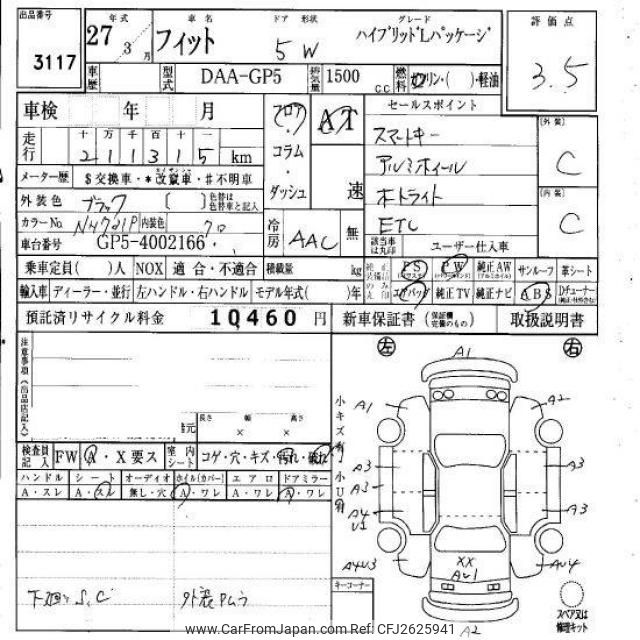 出品番号 年式 車名 ドア 形状 グレード 評価点
3117 27 3月 フィット 5W ハイブリッドLパッケージ 3.5
車歴 型式 DAA-GP5 排気量 1500cc 燃料 ガソリン・( )・軽油
車検 年 月 フロア AT セールスポイント
走行 十 万 千 百 十 一 コラム スマートキー [外装]
211315km ダッシュ 速 アルミホイール C
メーター歴 $交換車・*改竄車・#不明車 ホトライト [内装]
外装色 ブラック [ ] 色替は色替車と記入 冷房 AAC 無 ETC C
カラーNo. NH731P 内装色 クロ 該当車は丸印 ユーザー仕入車
車台番号 GP5-4002166
乗車定員( )人 NOX 適合・不適合 積載量 kg 純正装備品のみ丸印 PS PW 純正AW (アルミホイル) サンルーフ 革シート
輸入車 ディーラー・並行 左ハンドル・右ハンドル モデル年式( )年 エアバッグ 純正TV 純正ナビ ABS Dチューナー
預託済リサイクル料金 10460円 新車保証書 (保証欄完備のもの) 取扱説明書
注意事項(出品店記入) 左 右
A1
A1 A2
小キズ有
諸元 長さ 幅 高さ
× ×
検査員記入 FW A・X要ス 室内シート コゲ・穴・キズ・汚れ・破れ 小U有 A3 A3
ハンドル シート オーディオ ホイル(カバー) エアロ ドアミラー A3 A3
A・スレ A・スレ 無し・穴 A・ワレ A・ワレ A・ワレ A4 U1
A4U3 XX AU1 AU4
下廻りS,C 外装PMラ キーコーナー スペア又は修理キット
A2
www.CarFromJapan.com Ref: CFJ2625941